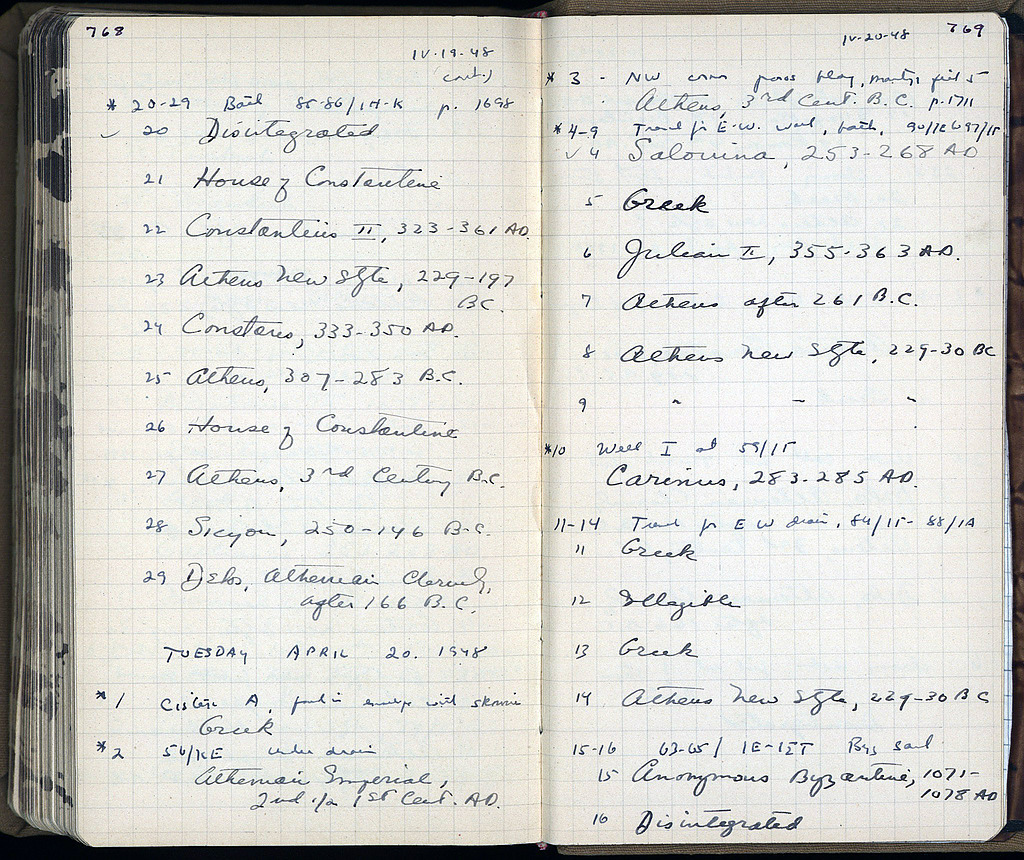 768
IV-19-48
(cont.)
* 20-29 85-86/ΙΗ-Κ p. 1698
✓ 20 Disintegrated
21 House of Constantine
22 Constantius II, 323-361 AD.
23 Athens New Style, 229-197
BC.
24 Constans, 333-350 AD.
25 Athens, 307-283 B.C.
26 House of Constantine
27 Athens, 3rd Century B.C.
28 Sicyon, 250-146 B.C.
29 Delos, Athenian Cleruchy,
after 166 B.C.
TUESDAY APRIL 20. 1948
* 1 Cistern A, found in with
Greek
* 2 56/ΚΕ under drain
Athenian Imperial,
2nd 1/2 1st Cent. AD.
IV-20-48 769
* 3 - NW corner poros
Athens, 3rd Cent. B.C. p. 1711
* 4-9 E-W. wall,
✓ 4 Salonina, 253-268 AD
5 Greek
6 Julian II, 355-363 AD.
7 Athens after 261 B.C.
8 Athens New Style, 229-30 BC
9 " " "
* 10 Well I at 59/ΙΕ
Carinus, 283-285 AD.
11-14 E W drain, 84/ΙΕ- 88/ΙΑ
11 Greek
12 Illegible
13 Greek
14 Athens New Style, 229-30 B C
15-16 63-65/ ΙΕ-ΙΣΤ Byz
15 Anonymous Byzantine, 1071-
1078 AD
16 Disintegrated